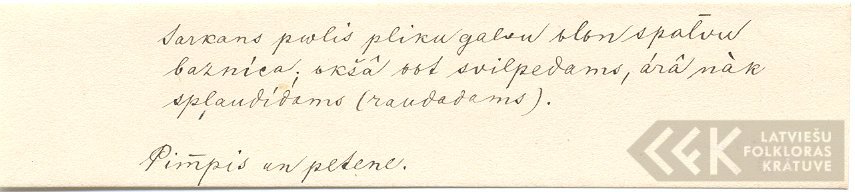 Sarkans puolis pliku galvu olon spolvu
baznica; okšâ oot svilpedams, árâ nàk
spļaudídams (raudadams).
Pim̄pis un petene.
LATVIEŠU
FOLKLORAS
KRĀTUVE